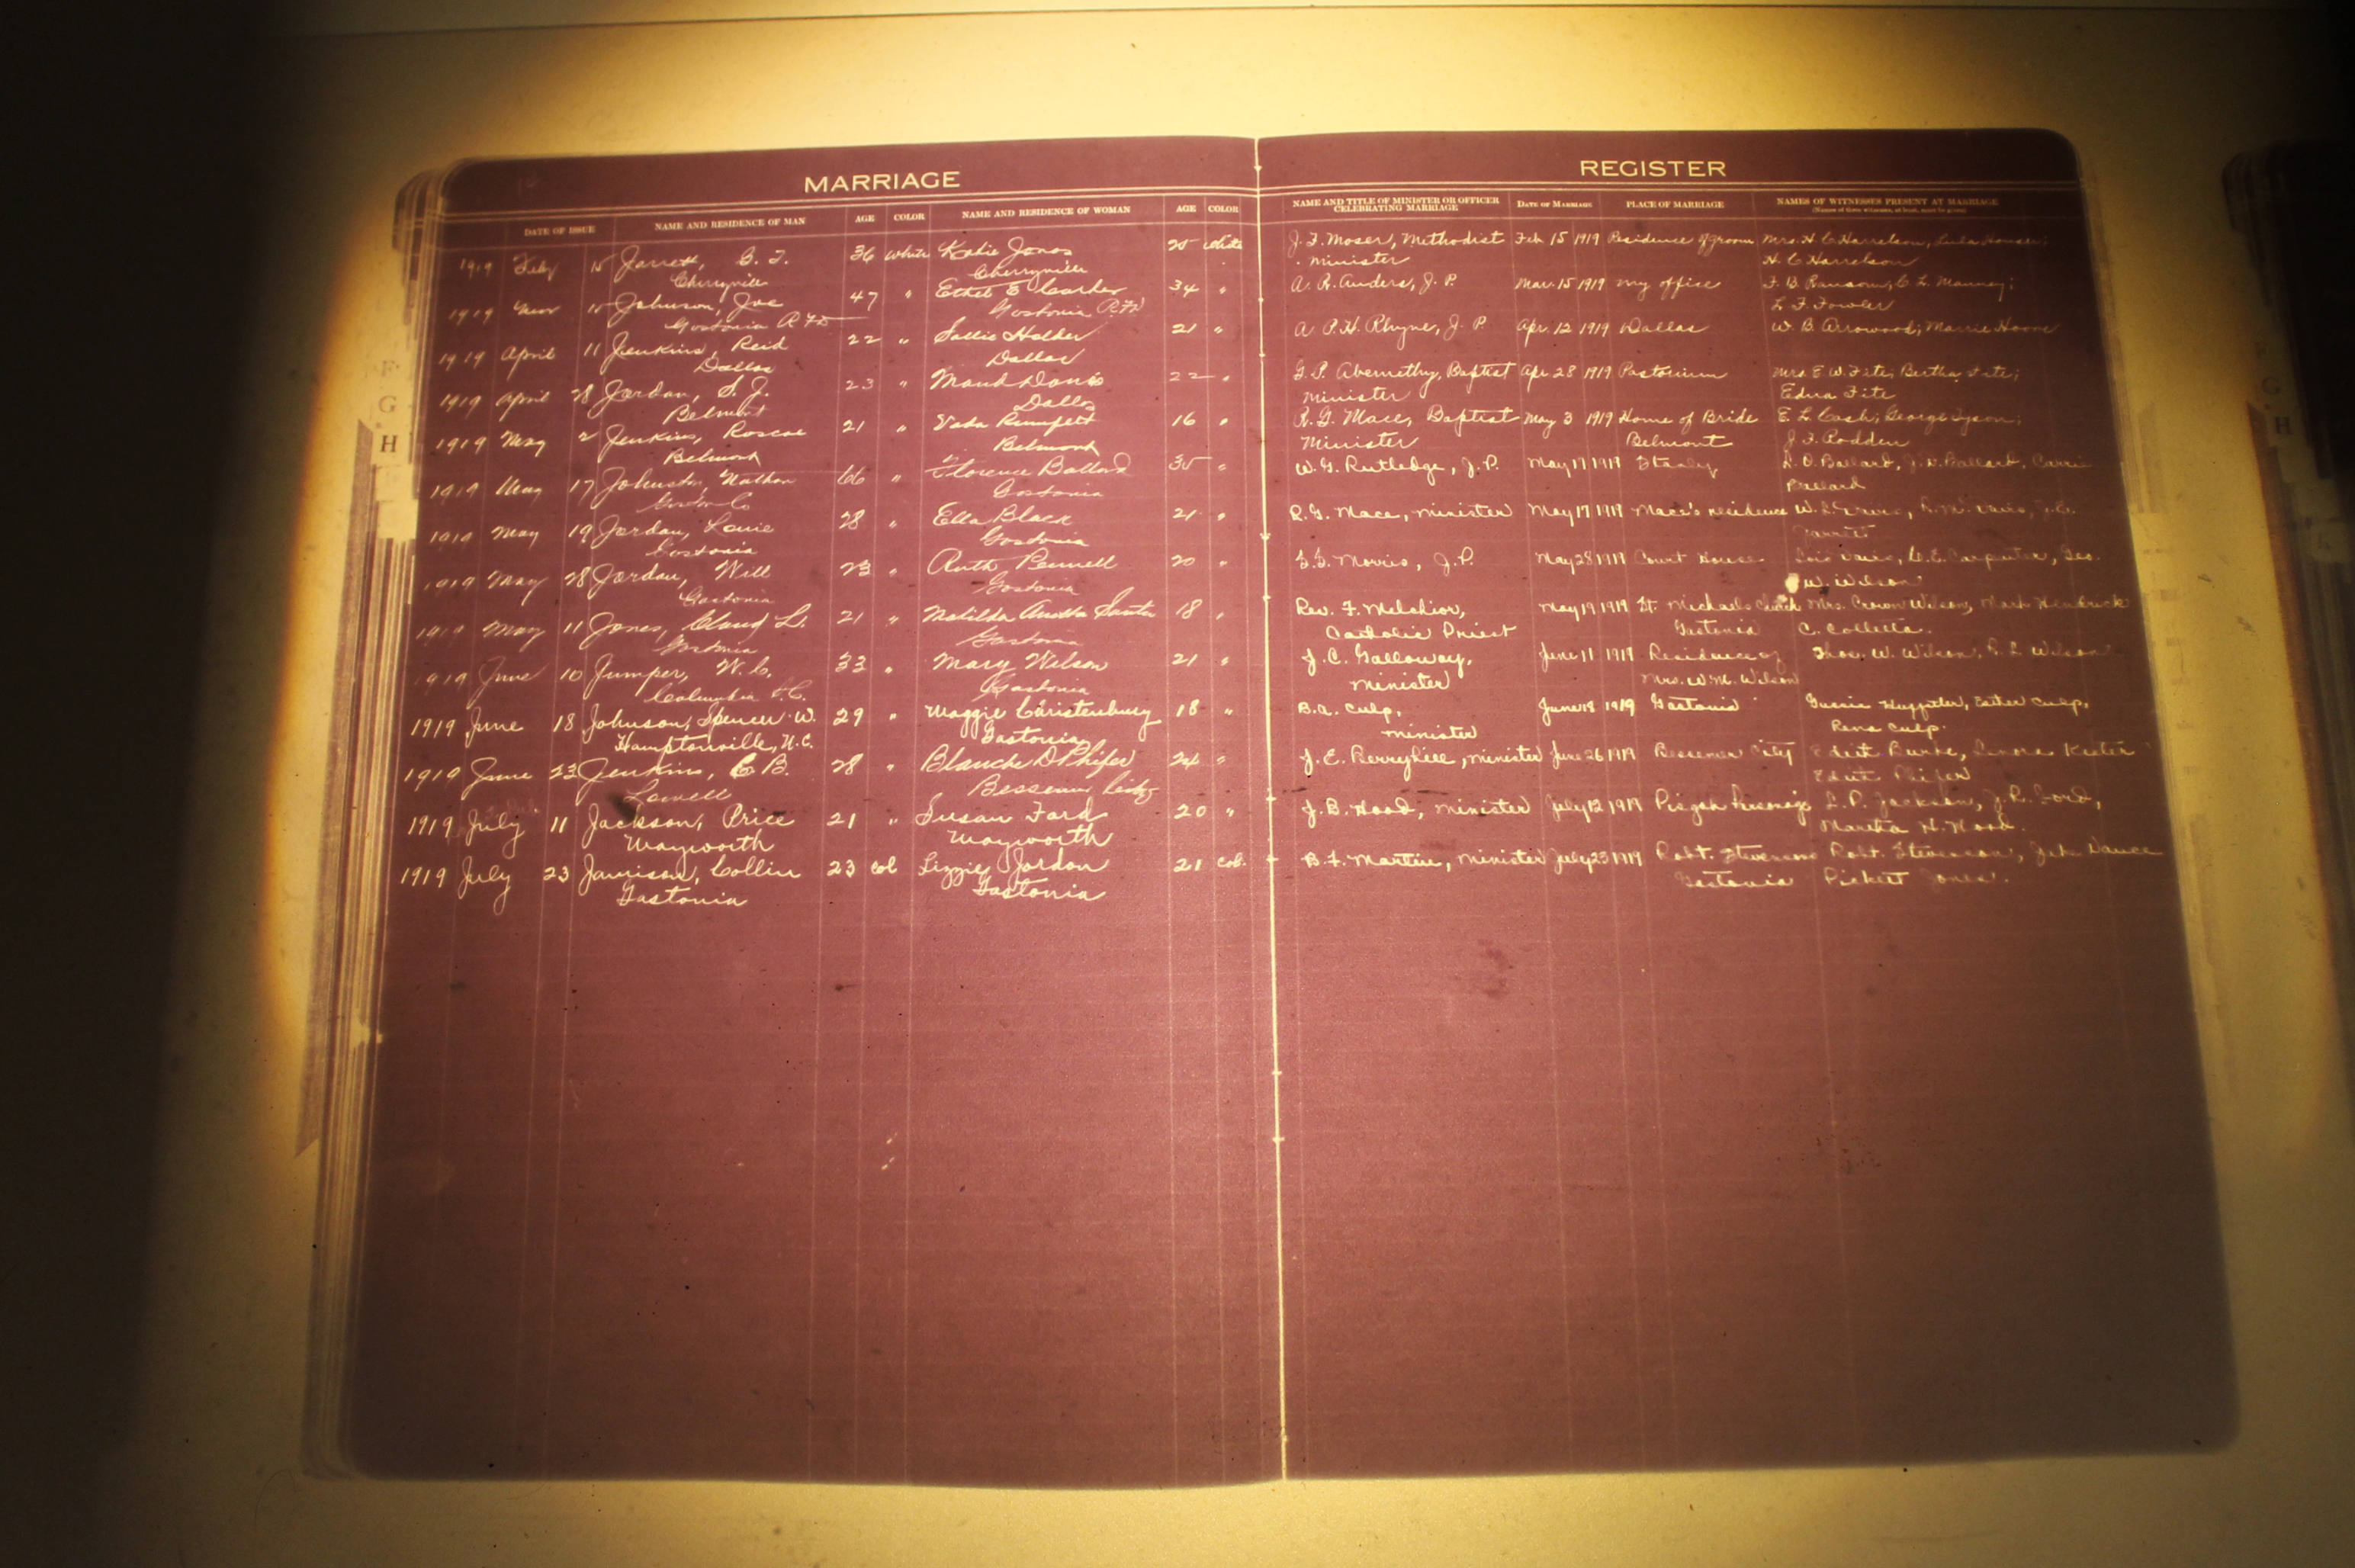 MARRIAGE
DATE OF ISSUE NAME AND RESIDENCE OF MAN AGE COLOR NAME AND RESIDENCE OF WOMAN AGE COLOR
1919 Feby 15 Jarrett, 36 White Katie Jones 25 White
Cherryville Cherryville
1919 Mar 15 Johnson, Joe 47 " Ethel E Carter 34 "
Gastonia RFD Gastonia RFD
1919 April 11 Jenkins, Reid 22 " Sallie Holder 21 "
Dallas Dallas
1919 April 28 Jordan, S. J. 23 " Maud Davis 22 "
Belmont Dallas
1919 May 2 Jenkins, Roscoe 21 " Rumfelt 16 "
Belmont Belmont
1919 May 17 Johnston, Nathan 66 " Florence Ballard 35 "
Gaston Co Gastonia
1919 May 19 Jordan, Louie 28 " Ella Black 21 "
Gastonia Gastonia
1919 May 28 Jordan, Will 23 " Ruth Pennell 20 "
Gastonia Gastonia
1919 May 11 Jones, Claud L. 21 " Matilda Santa 18 "
Gastonia Gastonia
1919 June 10 Jumper, W. C. 33 " Mary Wilson 21 "
Columbia S.C. Gastonia
1919 June 18 Johnson, Spencer W. 29 " Maggie Christenbury 18 "
Hamptonville, N.C. Gastonia
1919 June 23 Jenkins, C B. 28 " Blanch D Phifer 24 "
Lowell Bessemer City
1919 July 11 Jackson, Price 21 " Susan Ford 20 "
Mayworth Mayworth
1919 July 23 Jamison, Collin 23 col Lizzie Jordon 21 col.
Gastonia Gastonia
F
G
H
REGISTER
NAME AND TITLE OF MINISTER OR OFFICER CELEBRATING MARRIAGE DATE OF MARRIAGE PLACE OF MARRIAGE NAMES OF WITNESSES PRESENT AT MARRIAGE
(Names of three witnesses, at least, must be given)
J. F. Moser, Methodist Feb 15 1919 Residence of groom Mrs. H C Harrelson, Lula Houser;
Minister H. C Harrelson
A. R. Anders, J. P. Mar. 15 1919 My office F. B. Ransom, C. L. Mauney;
L. F. Fowler
A P. H. Rhyne, J. P Apr. 12 1919 Dallas W. B. Arrowood; Marrie Hoone
Abernethy, Baptist Apr. 28 1919 Pastorium Mrs. E. W. Fite; Bertha Fite;
Minister Edna Fite
R. G. Mace, Baptist May 3 1919 Home of Bride E. L. Cash; George Tyson;
Minister Belmont J. F. Rodden
W. G. Rutledge, J. P. May 17 1919 Stanley Ballard, Ballard, Carrie
Ballard
R. G. Mace, minister May 17 1919 Mace's residence
Garrett
Morris, J. P. May 28 1919 Court House Lois Davis, C. E. Carpenter, Geo.
W. Wilson
Rev. F. Melchior, May 19 1919 St. Michaels Church Mrs. Crown Wilson, Mart Hendrick
Catholic Priest Gastonia C. Colletta.
J. C. Galloway, June 11 1919 Residence of Thos. W. Wilson, R. L. Wilson
minister Mrs. W. M. Wilson
B. A. Culp, June 18 1919 Gastonia Gussie Huffstler, Esther Culp,
minister Rena Culp.
J. E. Berryhill, minister June 26 1919 Bessemer City Edith Burke, Lenora Keeter
Edith Phifer
J. B. Hood, minister July 12 1919 Pisgah Parsonage Jackson, J. R. Ford,
Martha H. Hood.
B. F. Martin, minister July 23 1919 Robt. Stevensons Robt. Stevenson, Jake Vance
Gastonia Pickert Jones.